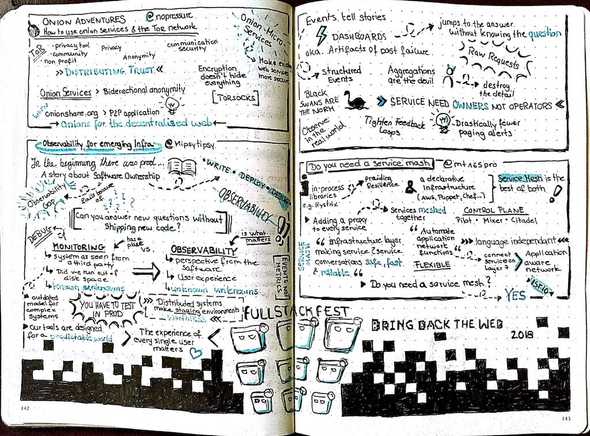 ONION ADVENTURES @nopressure
How to use onion services & the Tor network
TOR
privacy tool
community
non profit
Privacy
Anonymity
communication
security
>> DISTRIBUTING TRUST >>
Encryption
doesn't hide
everything
Onion Services > Bidirectional anonymity
[TORSOCKS]
onionshare.org > P2P application
→ Onions for the decentralised web
Onion Micro-
Services
Make
web services
more secure
Observability for emerging Infra @Mipsytipsy
In the beginning there was prod...
A story about Software Ownership
WRITE • DEPLOY •
OBSERVABILITY
Observability
Gap
DEBUG
Can you answer new questions without
Shipping new code?
is what
matters
MONITORING
system as seen from
a third party
Did we run out of
known unknowns
OBSERVABILITY
perspective from the
software
User experience
unknown unknowns
EVENTS not
METRICS
outdated
model for
complex
systems
YOU HAVE TO TEST
IN PROD
Distributed systems
make staging environments
our tools are designed
for a predictable world
The experience of
every single user
matters
Events tell stories
DASHBOARDS
aka. Artifacts of past failure
jumps to the answer
without knowing the question
Raw Requests
structured
Events
Aggregations
are the devil
destroy
the detail
Black
SWANS ARE
THE NORM
>> SERVICE NEED OWNERS NOT OPERATORS <<
Observe
in the
real world
Tighten Feedback
Loops
Drastically fewer
paging alerts
Do you need a service mesh @mt165pro
in-process
libraries
e.g. Hystrix
providing
Resilience
a declarative
Infrastructure
(AWS, Puppet, Chef...)
Service Mesh is the
best of both
services meshed
together
CONTROL PLANE
Pilot • Mixer • Citadel
Adding a proxy
to every service
"infrastructure layer
making service 2 service
conversations safe, fast
& reliable"
Automate
application
network
functions
FLEXIBLE
>> language independant <<
connect
services on
layer 7
Application
aware network
Do you need a service mesh?
YES
ISTIO
FULLSTACKFEST
BRING BACK THE WEB
2018
142
143